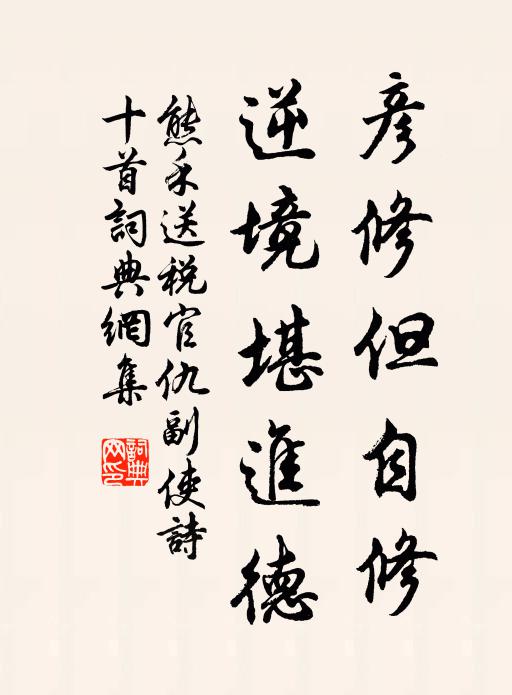 彦修但自修
逆境堪進德
熊禾送税官仇副使詩
十首詞典網集
詞典
网印